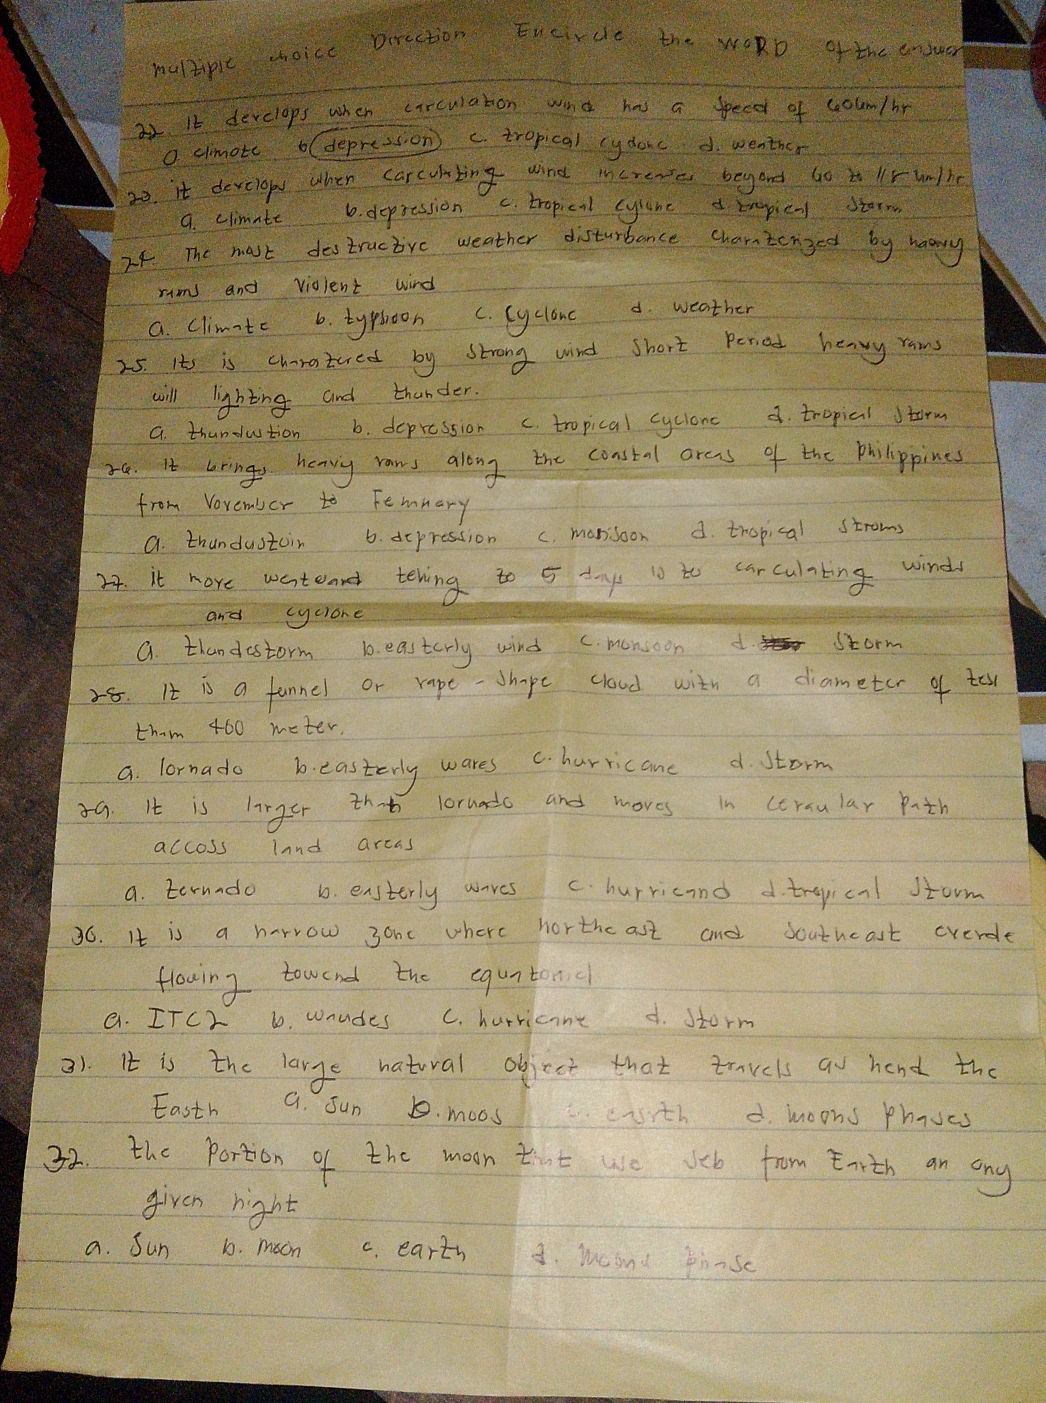 multiple choice Direction Encircle the WORD of the answer
22. It develops when carculation wind has a speed of 60km/hr
a climate b depression c. tropical cyclone d. weather
23. it develops when carculating wind increases beyond 60 to 118 km/hr
a. climate b. depression c. tropical cylone d tropical storm
24. The most destructive weather disturbance charaterized by heavy
rains and violent wind
a. climate b. typhoon c. cyclone d. weather
25. its is charatered by strong wind short period heavy rains
will lighting and thunder.
a. thundustion b. depression c. tropical cyclone d. tropical storm
26. It brings heavy rains along the coastal areas of the philippines
from Vovember to Femnary
a. thundustoin b. depression c. monsoon d. tropical stroms
27. it move westward teking to 5 days is to carculating winds
and cyclone
a. thundestorm b. easterly wind c. monsoon d. storm
28. It is a funnel or rape - shape cloud with a diameter of less
than 400 meter.
a. lornado b. easterly wares c. hurricane d. storm
29. It is larger than lornado and moves in ceraular path
accoss land areas
a. ternado b. easterly waves c. hurricand d. tropical storm
30. It is a narrow zone where northeast and southeast
flowing towend the
a. ITCZ b. waudes c. hurricane d. storm
31. It is the large natural object that travels au hend the
Easth a. sun b. moos c. easrth d. moons phases
32. the portion of the moon that use seb from Earth an any
given night
a. sun b. moon c. earth d. moons phase